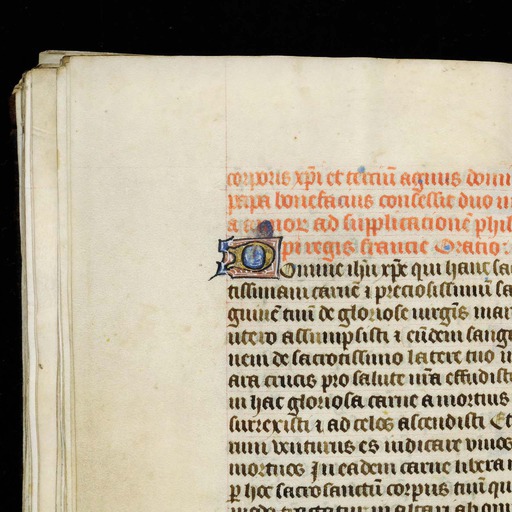 corporis xpi et terciū agnus domi
papa bonifacius concessit duo m
annor ad supplicationē phil
pi regis francie Oratio
Domine ihu xpe qui hanc sa
tissimam carnē ⁊ preciosissimum sa
guinē tuū de gloriose uirgīs mar
utero assumpsisti ⁊ eūdem sangu
nem de sacrotissimo latere tuo i
ara crucis pro salute nr̄a effudist
in hac gloriosa carne a mortuis
surrexisti ⁊ ad celos ascendisti Et
rum venturus es iudicare viuos
mortuos In eadem carne libera
p hoc sacrosanctū corpus tuū qu